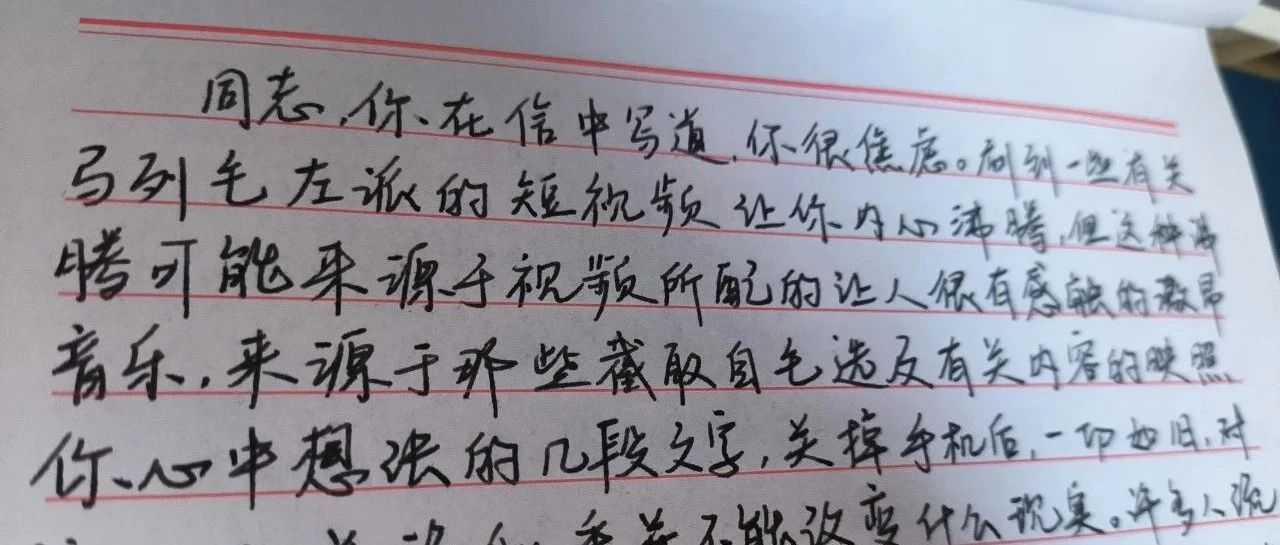 同志，你在信中写道，你很焦虑。刷到一些有关
马列毛左派的短视频让你内心沸腾，但这种沸
腾可能来源于视频所配的让人很有感触的激昂
音乐，来源于那些截取自毛选及有关内容的映照
你心中想法的几段文字，关掉手机后，一切如旧，对
并不能改变什么现实。许多人沉